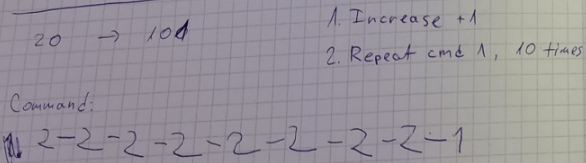 20 → 101
1. Increase +1
2. Repeat cmd 1, 10 times
Command:
2-2-2-2-2-2-2-2-1